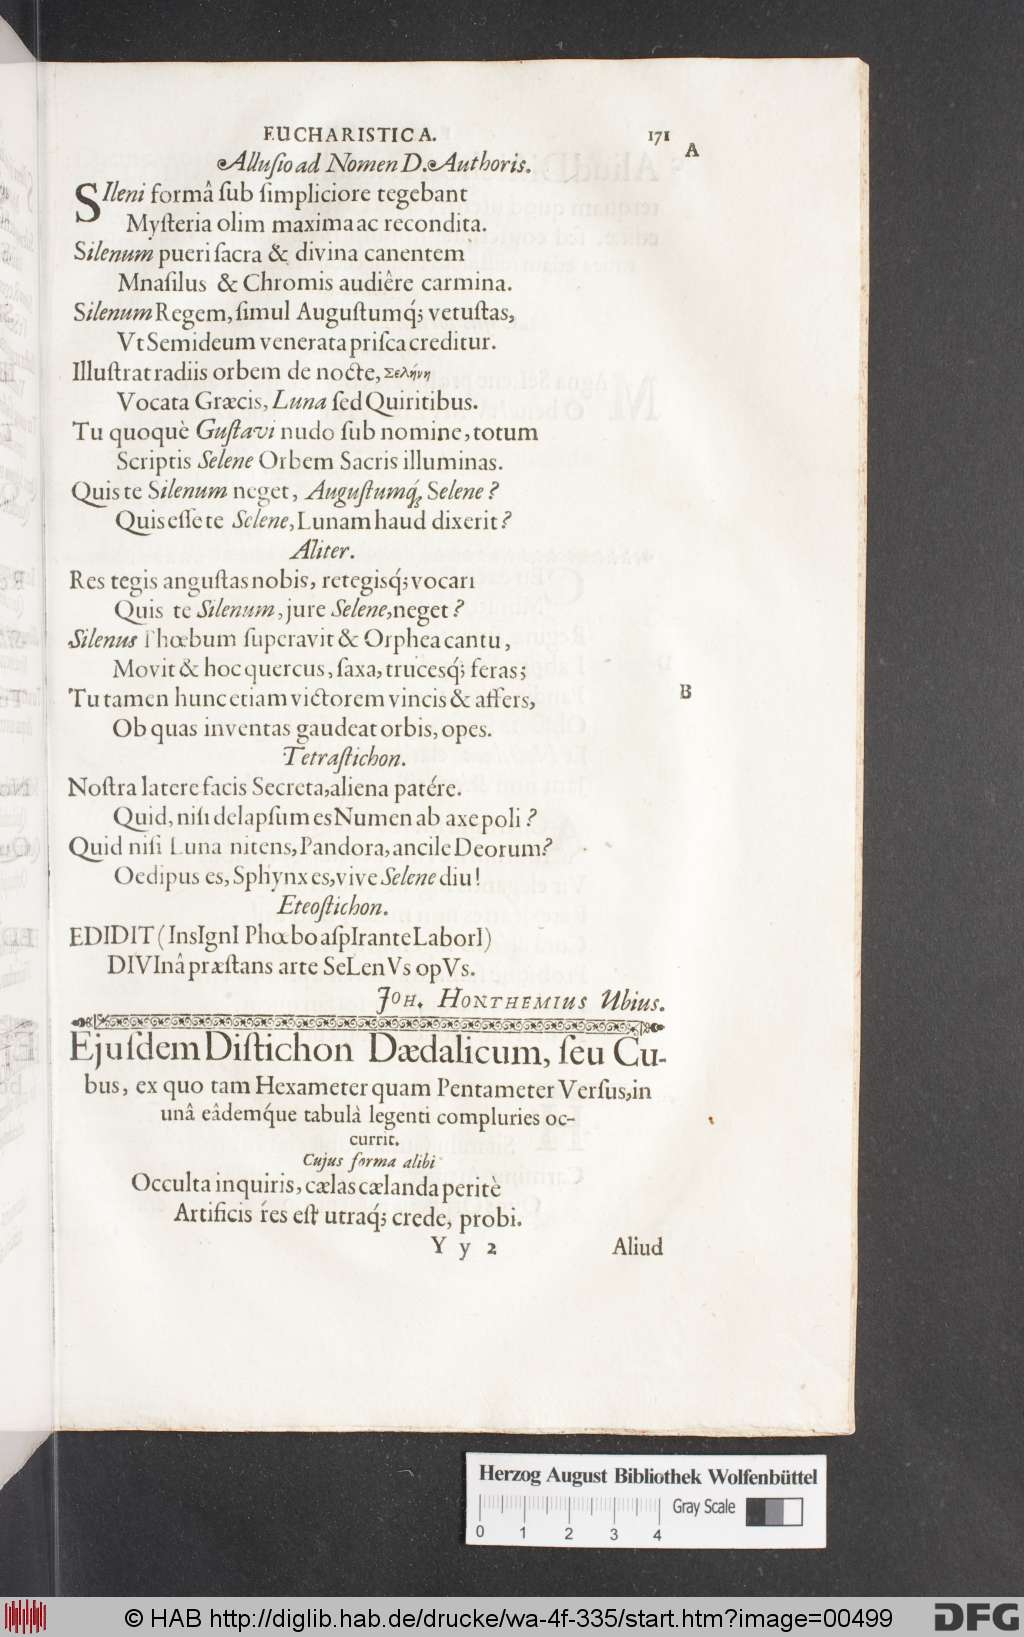 EUCHARISTICA. 171
A
Allusio ad Nomen D. Authoris.
SIleni formâ ſub ſimpliciore tegebant
Myſteria olim maxima ac recondita.
Silenum pueri ſacra & divina canentem
Mnaſilus & Chromis audiêre carmina.
Silenum Regem, ſimul Auguſtumq́; vetuſtas,
Vt Semideum venerata priſca creditur.
Illuſtrat radiis orbem de nocte, Σελήνη
Vocata Græcis, Luna ſed Quiritibus.
Tu quoquè Guſtavi nudo ſub nomine, totum
Scriptis Selene Orbem Sacris illuminas.
Quis te Silenum neget, Auguſtumq́; Selene?
Quis eſſe te Selene, Lunam haud dixerit?
Aliter.
Res tegis anguſtas nobis, retegisq́; vocari
Quis te Silenum, jure Selene, neget?
Silenus Phœbum ſuperavit & Orphea cantu,
Movit & hoc quercus, ſaxa, trucesq́; feras;
Tu tamen hunc etiam victorem vincis & affers,
B
Ob quas inventas gaudeat orbis, opes.
Tetraſtichon.
Noſtra latere facis Secreta, aliena patére.
Quid, niſi delapſum es Numen ab axe poli?
Quid niſi Luna nitens, Pandora, ancile Deorum?
Oedipus es, Sphynx es, vive Selene diu!
Eteoſtichon.
EDIDIT (InsIgnI Phœbo aſpIrante LaborI)
DIVInâ præſtans arte SeLenVs opVs.
JOH. HONTHEMIUS Ubius.
Ejuſdem Diſtichon Dædalicum, ſeu Cu-
bus, ex quo tam Hexameter quam Pentameter Verſus, in
unâ eâdemq́ue tabulà legenti compluries oc-
currit.
Cujus forma alibi
Occulta inquiris, cælas cælanda peritè
Artificis res eſt utraq́; crede, probi.
Y y 2 Aliud
Herzog August Bibliothek Wolfenbüttel
Gray Scale
0 1 2 3 4
© HAB http://diglib.hab.de/drucke/wa-4f-335/start.htm?image=00499 DFG